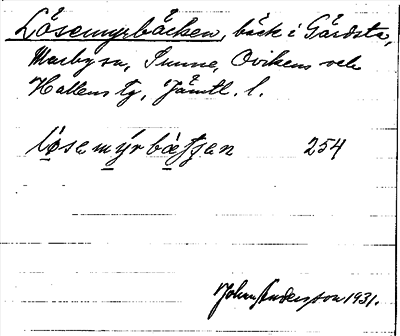 Lösemyrbäcken, bäck i Gärdsta,
Marby sn, Sunne, Ovikens och
Hallens tg, Jämtl. l.
løsemýrbætjen 254
Johan Andersson 1931.